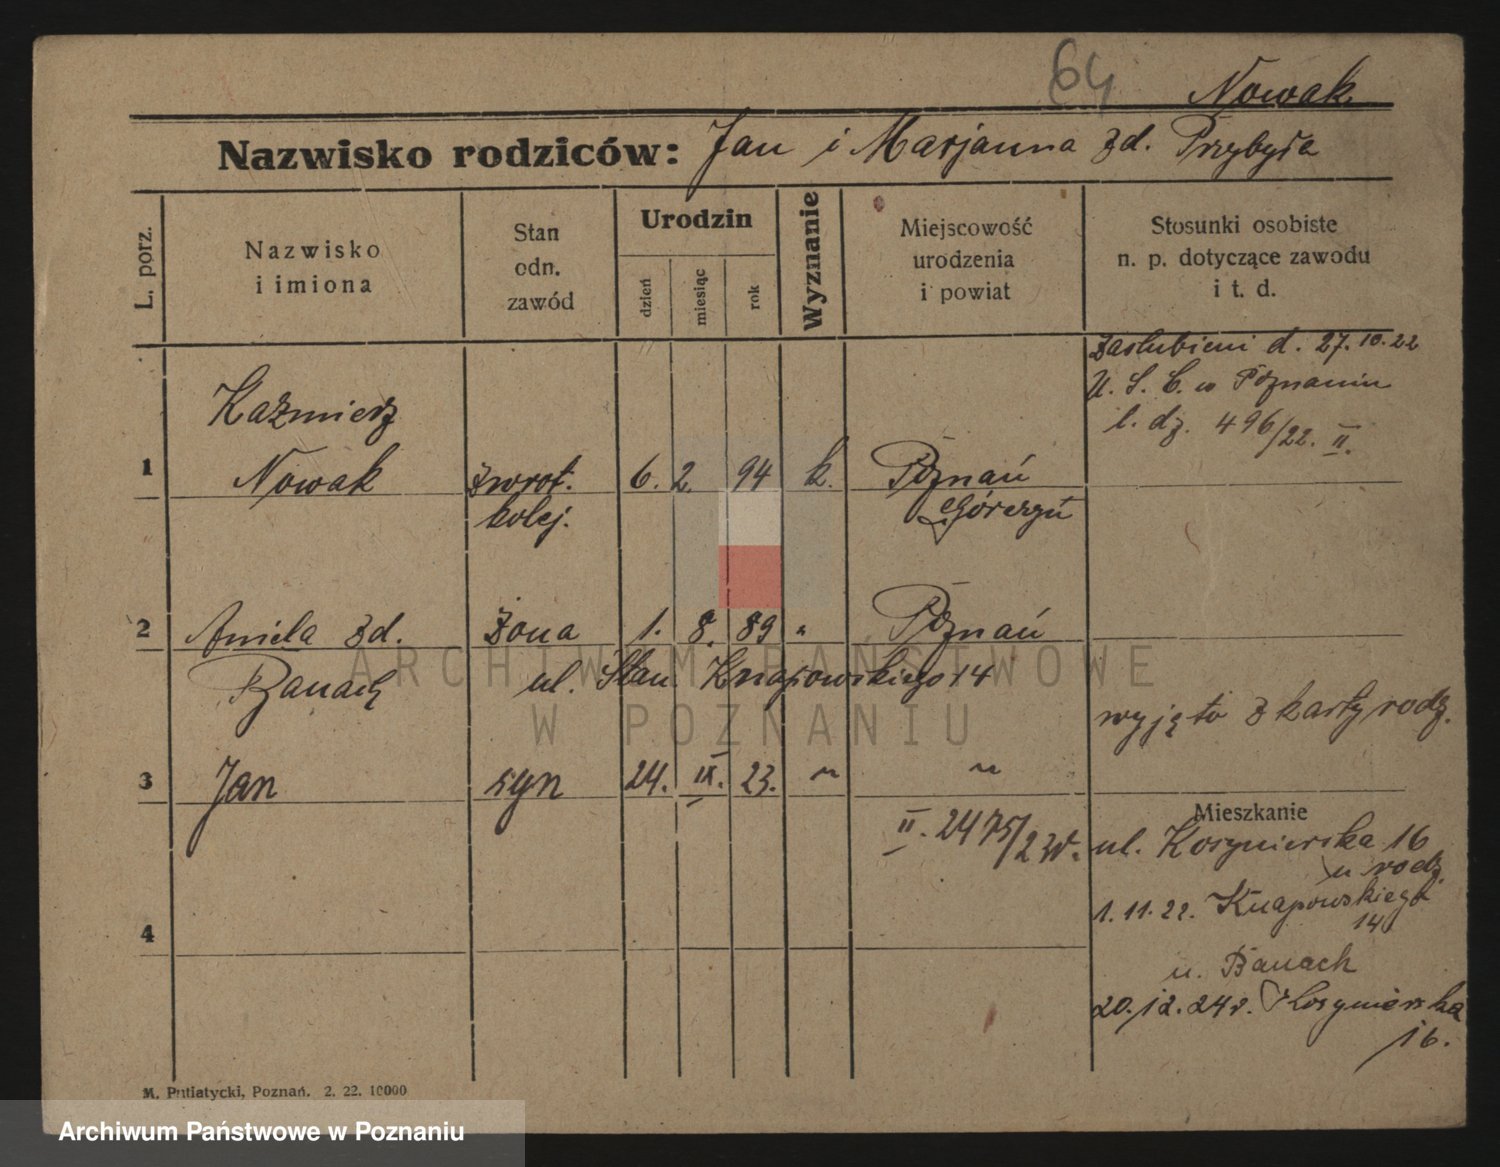 64 Nowak
Nazwisko rodziców: Jan i Marjanna zd. Przybyła
L. porz.
Nazwisko
i imiona
Stan
odn.
zawód
Urodzin
dzień
miesiąc
rok
Wyznanie
Miejscowość
urodzenia
i powiat
Stosunki osobiste
n. p. dotyczące zawodu
i t. d.
Zaslubieni d. 27.10.22
U. S. C. w Poznaniu
l. dz. 496/22. II.
Kazmierz
1 Nowak zwrot. 6. 2. 94 k. Poznań
kolej. Górczyn
2 Aniela zd. żona 1. 8. 89 " Poznań
Banach ul. Stan. Knapowskiego 14
ARCHIWUM PAŃSTWOWE
W POZNANIU
wyjęto z karty rodz.
3 Jan syn 24. IX. 23. ~ ~
II. 2475/23r.
Mieszkanie
ul. Kosynierska 16
u rodz.
1.11.22. Knapowskiego
14
4
u. Banach
20.12.24r. Kosynierska
16.
M. Putiatycki, Poznań. 2. 22. 10000
Archiwum Państwowe w Poznaniu